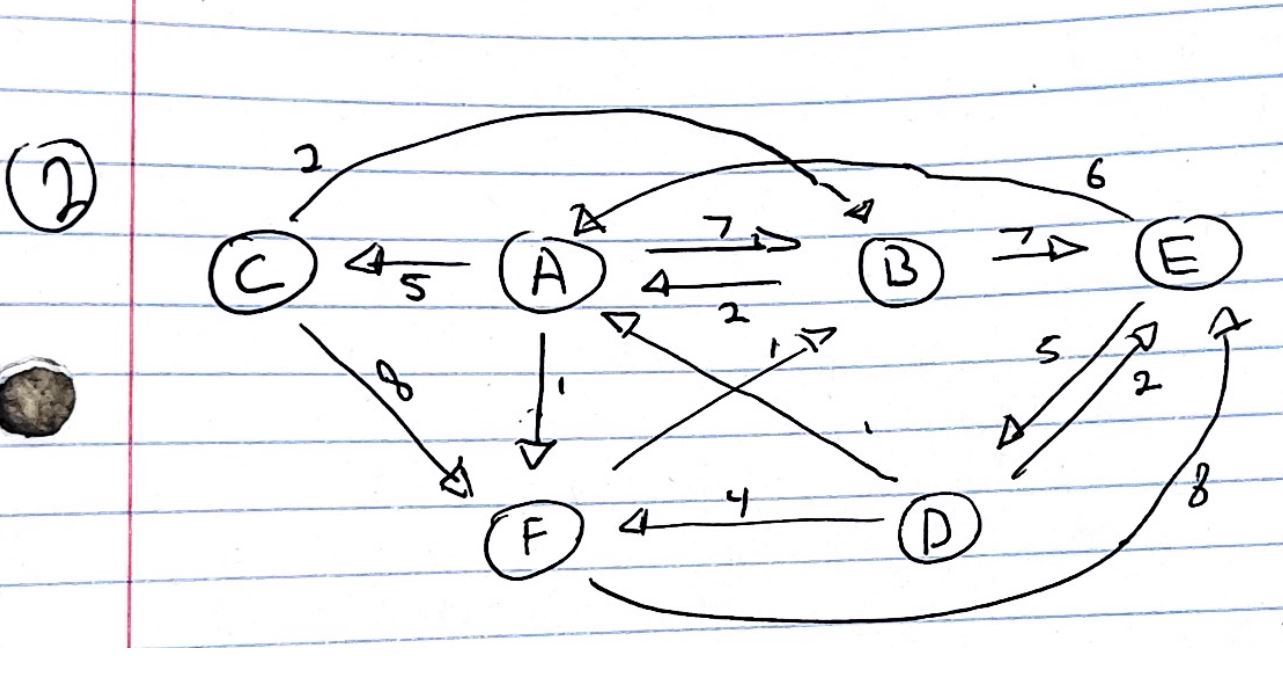 2
2 6
C 5 A 7 2 B 7 E
8 1 1 1 5 2
F 4 D 8